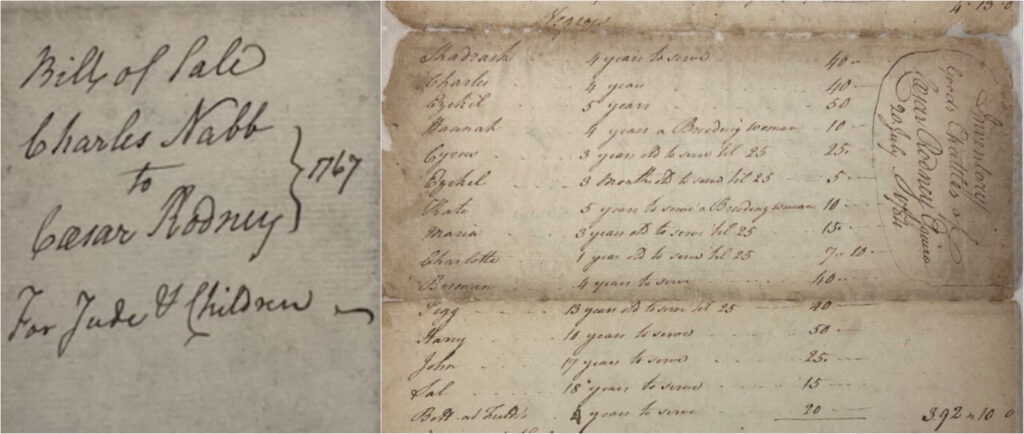 Bill of Sale
Charles Nabb
to
Cæsar Rodney
1767
For Jude & Children
4 " 13 " 0
Negroes
Shadrach 4 years to serve 40
Charles 4 years 40
Ezekiel 5 years 50
Hannah 4 years a Breeding woman 10
Cyrus 3 years old to serve til 25 25
Ezekiel 3 Months old to serve til 25 5
Kate 5 years to serve a Breeding woman 10
Maria 3 years old to serve til 25 15
Charlotte 1 year old to serve til 25 7 " 10
4 years to serve 40
13 years old to serve til 25 40
Harry 10 years to serve 50
John 17 years to serve 25
Sal 18 years to serve 15
Bett at years to serve 20 392 " 10 " 0
Inventory
Goods Chattles of
Cæsar Rodney Esquire
20 July 1784